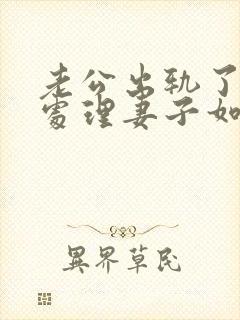 老公出轨了
处理妻子如
異界草民